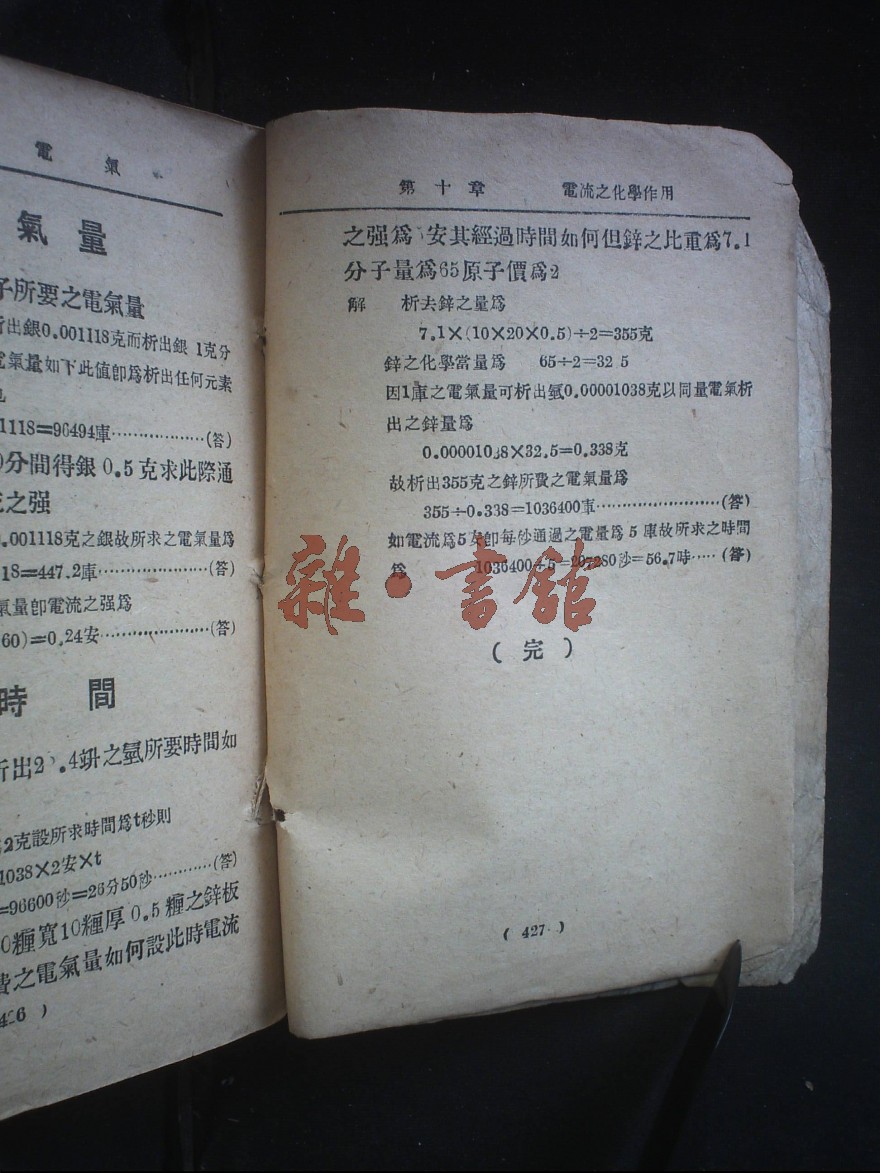 電氣
氣量
子所要之電氣量
析出銀0.001118克而析出銀 1克分
電氣量如下此值卽爲析出任何元素
也
1118=96494庫………………(答)
0分間得銀 0.5 克求此際通
之强
.001118克之銀故所求之電氣量爲
18=447.2庫…………………(答)
氣量卽電流之强爲
60)=0.24安…………………(答)
時間
析出2 .4竔之氫所要時間如
2克設所求時間爲t秒則
1038×2安×t
=96600沙=26分50沙…………(答)
0糎寬10糎厚 0.5 糎之鋅板
費之電氣量如何設此時電流
426 )
第十章 電流之化學作用
之强爲 安其經過時間如何但鋅之比重爲7.1
分子量爲65原子價爲2
解 析去鋅之量爲
7.1×(10×20×0.5)÷2=355克
鋅之化學當量爲 65÷2=32 5
因1庫之電氣量可析出氫0.00001038克以同量電氣析
出之鋅量爲
0.00001038×32.5=0.338克
故析出355克之鋅所費之電氣量爲
355÷0.338=1036400庫…………………………(答)
如電流爲5安卽每沙通過之電量爲 5 庫故所求之時間
爲 1036400÷5=207280沙=56.7時…… (答)
雜·書館
( 完 )
( 427 )